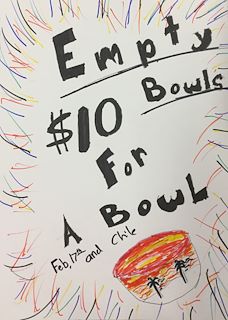 Empty
Bowls
$10
For
A Bowl
and Chile
Feb, 17th